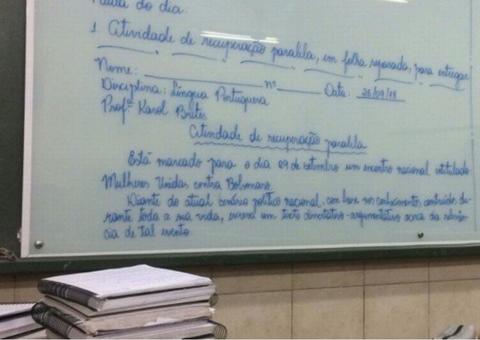 Pauta do dia
1. Atividade de recuperação paralela, em folha separada, para entregar
Nome: ____________ nº ______ Data: 26/09/18
Disciplina: Língua Portuguesa
Profª Karol Brites
Atividade de recuperação paralela
Está marcado para o dia 29 de setembro um encontro nacional intitulado
Mulheres Unidas contra Bolsonaro.
Diante do atual cenário político nacional, com base nos conhecimentos construídos du-
rante toda a sua vida, escreva um texto dissertativo-argumentativo acerca da relevân-
cia de tal evento.